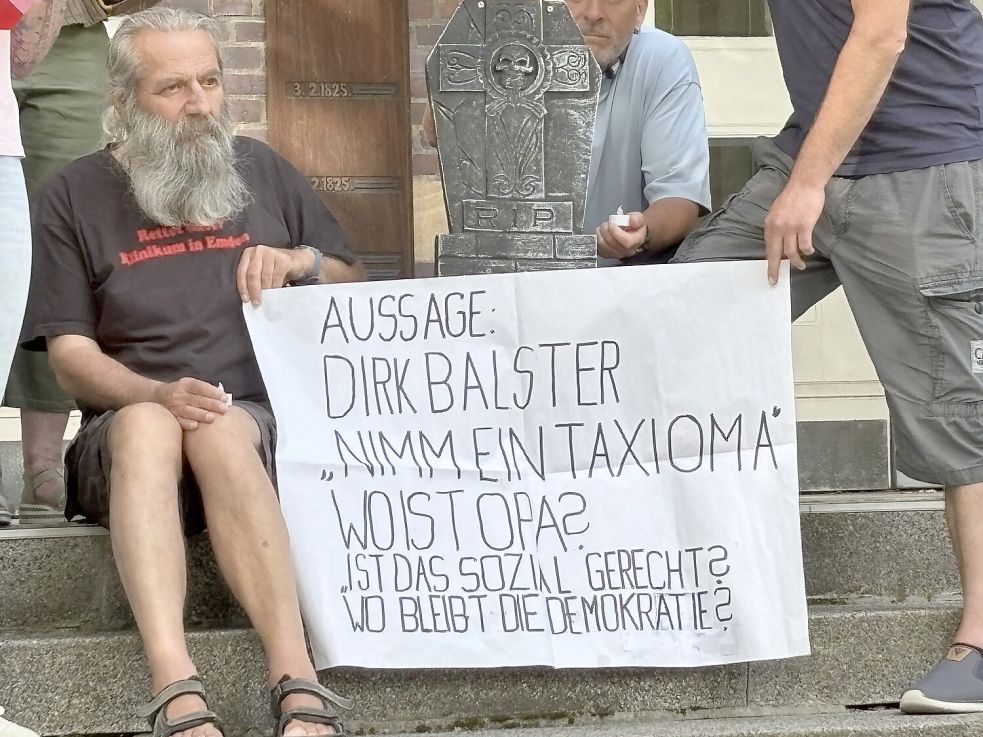 3.2.1825.
2.1825.
RIP
Klinikum in Emden
AUSSAGE:
DIRK BALSTER
„NIMM EIN TAXI OMA"
WO IST OPA?
„IST DAS SOZIAL GERECHT?
WO BLEIBT DIE DEMOKRATIE?